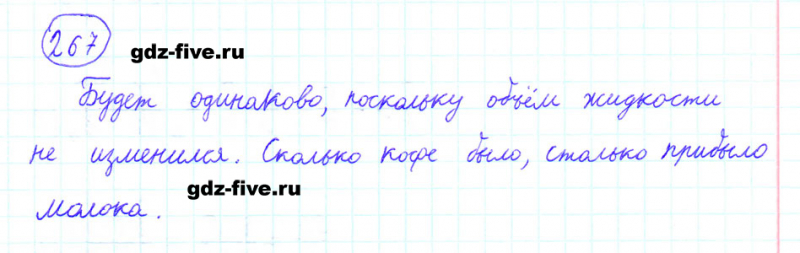 267 gdz-five.ru
Будет одинаково, поскольку объём жидкости
не изменился. Сколько кофе было, столько прибыло
gdz-five.ru
молока.